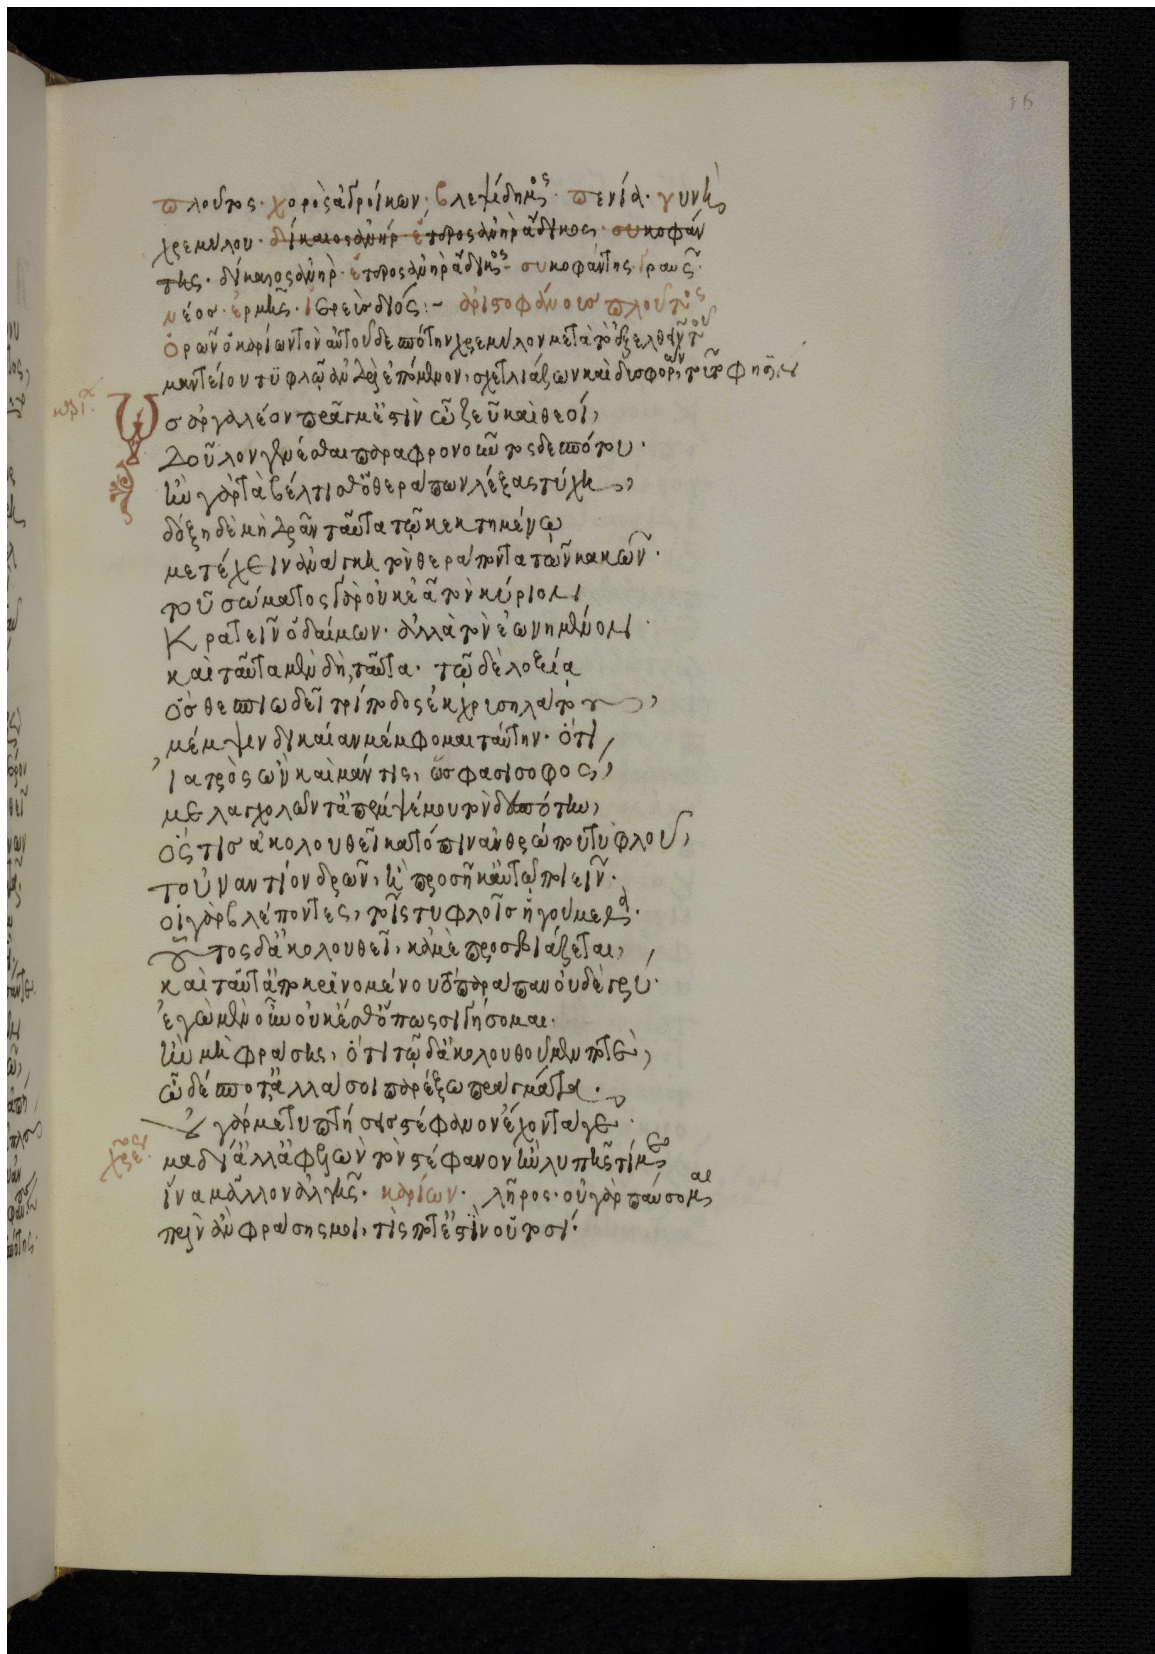 16
πλοῦτος· χορὸς ἀγροίκων· βλεψίδημος· πενία· γυνὴ
χρεμύλου· δίκαιος ἀνήρ· ἕτερος ἀνὴρ ἄδικος· συκοφάν
της· δίκαιος ἀνήρ· ἕτερος ἀνὴρ ἄδικος· συκοφάντης· γραῦς·
νέος· ἑρμῆς· ἱερεὺς διός:- ἀριστοφάνους πλοῦτος
ὁρῶν ὁ καρίων τὸν αὐτοῦ δεσπότην χρεμύλον μετὰ τὸ ἐξελθεῖν τοῦ
μαντείου τυφλῷ ἀνδρὶ ἑπόμενον, σχετλιάζων καὶ δυσφορῶν, τοῦτο φησίν
καρί
Ὡσ ἀργαλέον πρᾶγμ' ἐστὶν ὦ ζεῦ καὶ θεοί,
Δοῦλον γενέσθαι παραφρονοῦντος δεσπότου·
κἂν γὰρ τὰ βέλτισθ' ὁ θεράπων λέξας τύχη,
δόξῃ δὲ μὴ δρᾶν ταῦτα τῷ κεκτημένῳ
μετέχειν ἀνάγκη τὸν θεράποντα τῶν κακῶν·
τοῦ σώματος γὰρ οὐκ ἐᾷ τὸν κύριον
Κρατεῖν ὁ δαίμων· ἀλλὰ τὸν ἐωνημένον·
καὶ ταῦτα μὲν δὴ ταῦτα· τῷ δὲ λοξίᾳ
ὃσ θεσπιωδεῖ τρίποδος ἐκ χρυσηλάτου,
μέμψιν δικαίαν μέμφομαι ταύτην· ὅτι
ἰατρὸς ὢν καὶ μάντις, ὥς φασι σοφός,
μελαγχολῶντ' ἀπέπεμψέ μου τὸν δεσπότην,
ὅστισ ἀκολουθεῖ κατόπιν ἀνθρώπου τυφλοῦ,
τοὐναντίον δρῶν, ἢ προσῆκ' αὐτῷ ποιεῖν·
οἱ γὰρ βλέποντες, τοῖς τυφλοῖσ ἡγούμεθα·
οὗτος δ' ἀκολουθεῖ, κἀμὲ προσβιάζεται,
καὶ ταῦτ' ἀποκρινομένου τὸ παράπαν οὐδὲ γρύ·
ἐγὼ μὲν οὖν οὐκ ἔσθ' ὅπως σιγήσομαι·
ἢν μὴ φράσῃς, ὅτι τῷδ' ἀκολουθοῦμεν ποτὲ,
ὦ δέσποτ', ἀλλά σοι παρέξω πράγματα·
οὐ γάρ με τυπτήσεις στέφανον ἔχοντά γε·
χρε
μὰ δί' ἀλλ' ἀφελὼν τὸν στέφανον ἢν λυπῇς τί με
ἵνα μᾶλλον ἀλγῇς· καρίων· λῆρος· οὐ γὰρ παύσομαι
πρὶν ἂν φράσῃς μοι, τίς ποτ' ἐστὶν οὑτοσί·